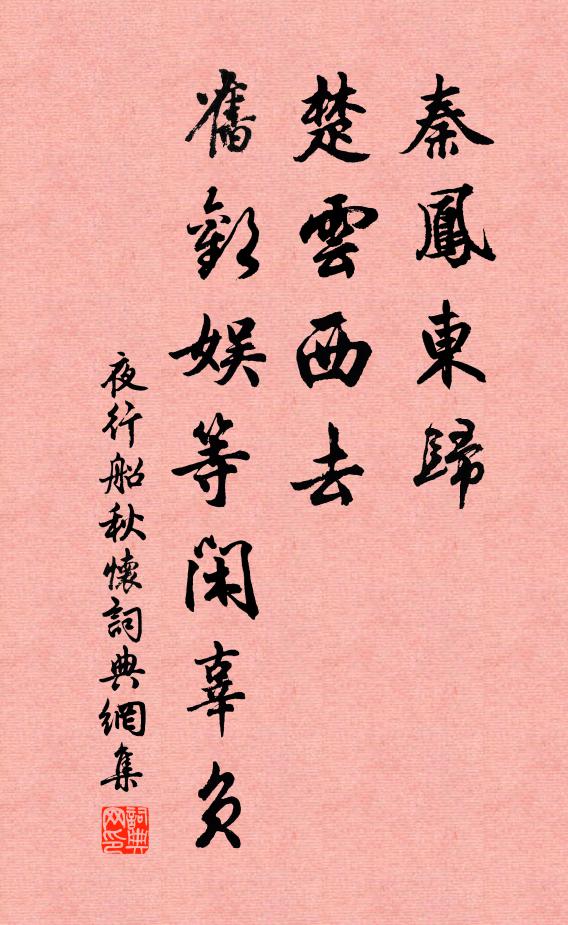 秦鳳東歸
楚雲西去
舊歡娛等閑辜負
夜行船秋懷詞典網集
詞典
网印